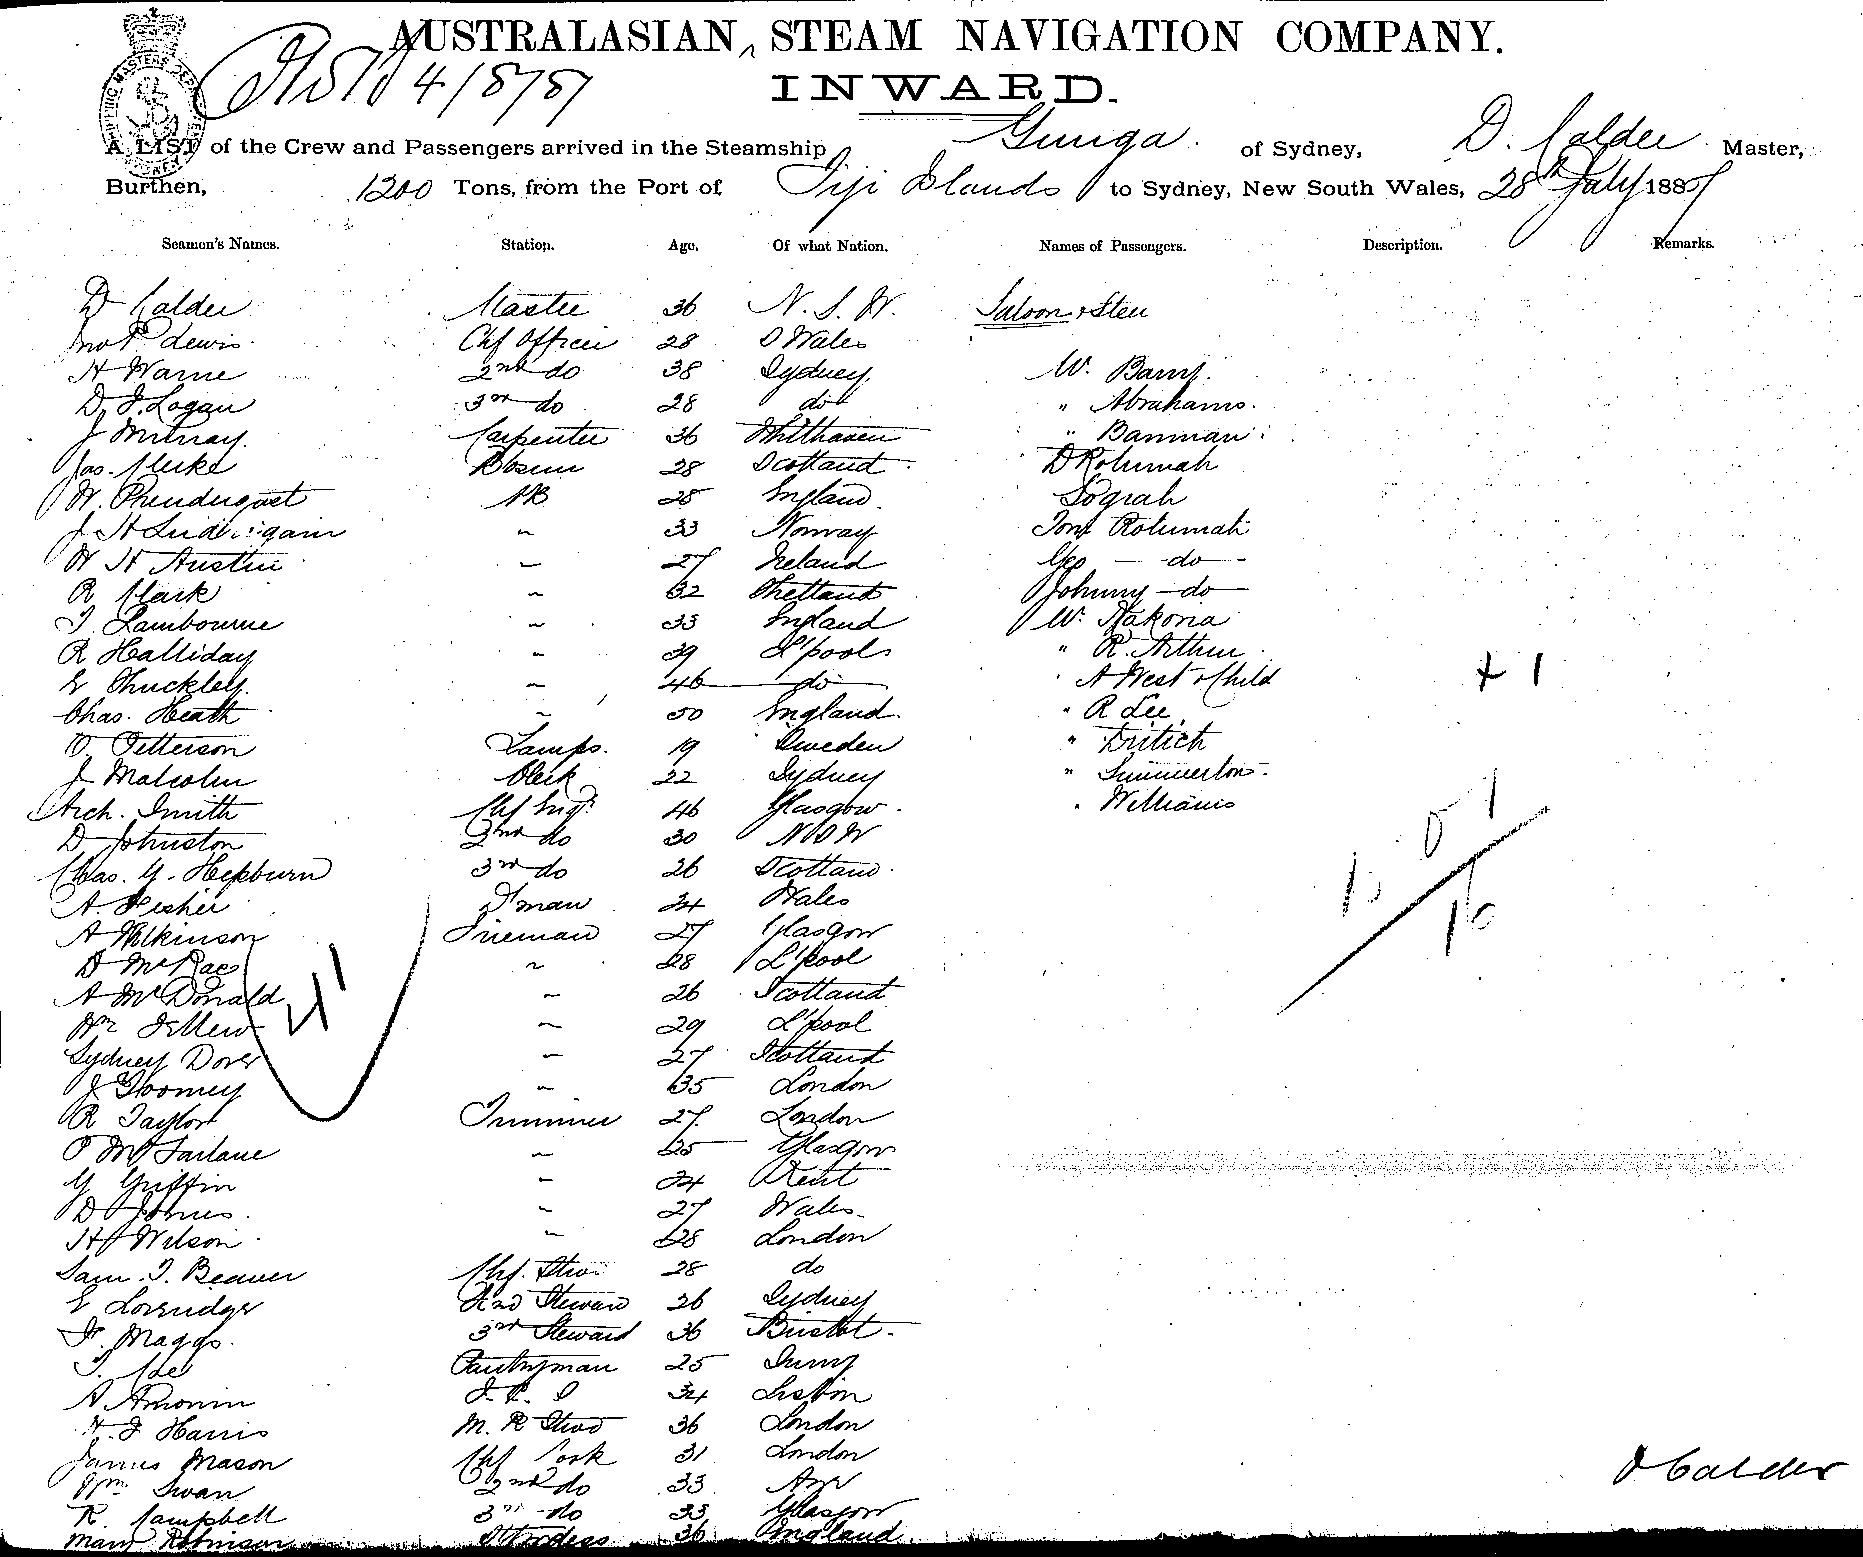 AUSTRALASIAN STEAM NAVIGATION COMPANY.
INWARD.
A LIST of the Crew and Passengers arrived in the Steamship Gunga of Sydney, D. Calder Master,
Burthen, 1200 Tons, from the Port of Fiji Islands to Sydney, New South Wales, 28th July 1887
Seamen's Names. Station. Age. Of what Nation. Names of Passengers. Description. Remarks.
D Calder Master 36 N. S. W. Saloon & Steer
Jno P Lewis Chf Officer 28 S Wales
H Warne 2nd do 38 Sydney W. Barry.
D. J. Logan 3rd do 28 do " Abrahams.
J Murray Carpenter 36 Whithaven " Banman
Jas. Meike Bosun 28 Scotland D Rotumah
W. Prendergast AB 25 England Sograh
J H 33 Norway Tom Rotumah
W H Austin 27 Ireland Geo — do —
R Clark 32 Shetland Johnny — do —
T Lambourne 33 England W. Nakoria
R Halliday 39 L'pool " R. Arthur
E Shuckley 46 do A West & Child + 1
Chas. Heath 50 England " R Lee
O. Petterson Lamps. 19 Sweden "
J Malcolm Clerk 22 Sydney " Summerton
Arch. Smith Chf Engr 46 Glasgow " Williams
D Johnston 2nd do 30 NSW
Chas. G. Hepburn 3rd do 26 Scotland
A. Fisher D'man 34 Wales
A Wilkinson Fireman 27 Glasgow
D McRae 28 L'pool
A McDonald 26 Scotland
Wm 29 L'pool
Sydney Dover 27 Scotland
J Toomey 35 London
R Taylor Trimmer 27 London
P McFarlane 25 Glasgow
G Griffin 34 Kent
D Jones 27 Wales
H Wilson 28 London
Sam. T. Beaver Chf. Stwd 28 do
E Loveridge 2nd Steward 26 Sydney
F. Maggs 3rd Steward 36 Bristol
T. Pantryman 25 Surry
A. Amorim F. C. S 34 Lisbon
H. J Harris M. R Stwd 36 London
James Mason Chf Cook 31 London
Wm Swan 2nd do 33 Ayr
R. Campbell 3rd do 33 Glasgow
Mary Robinson Stwdess 36 England
D Calder